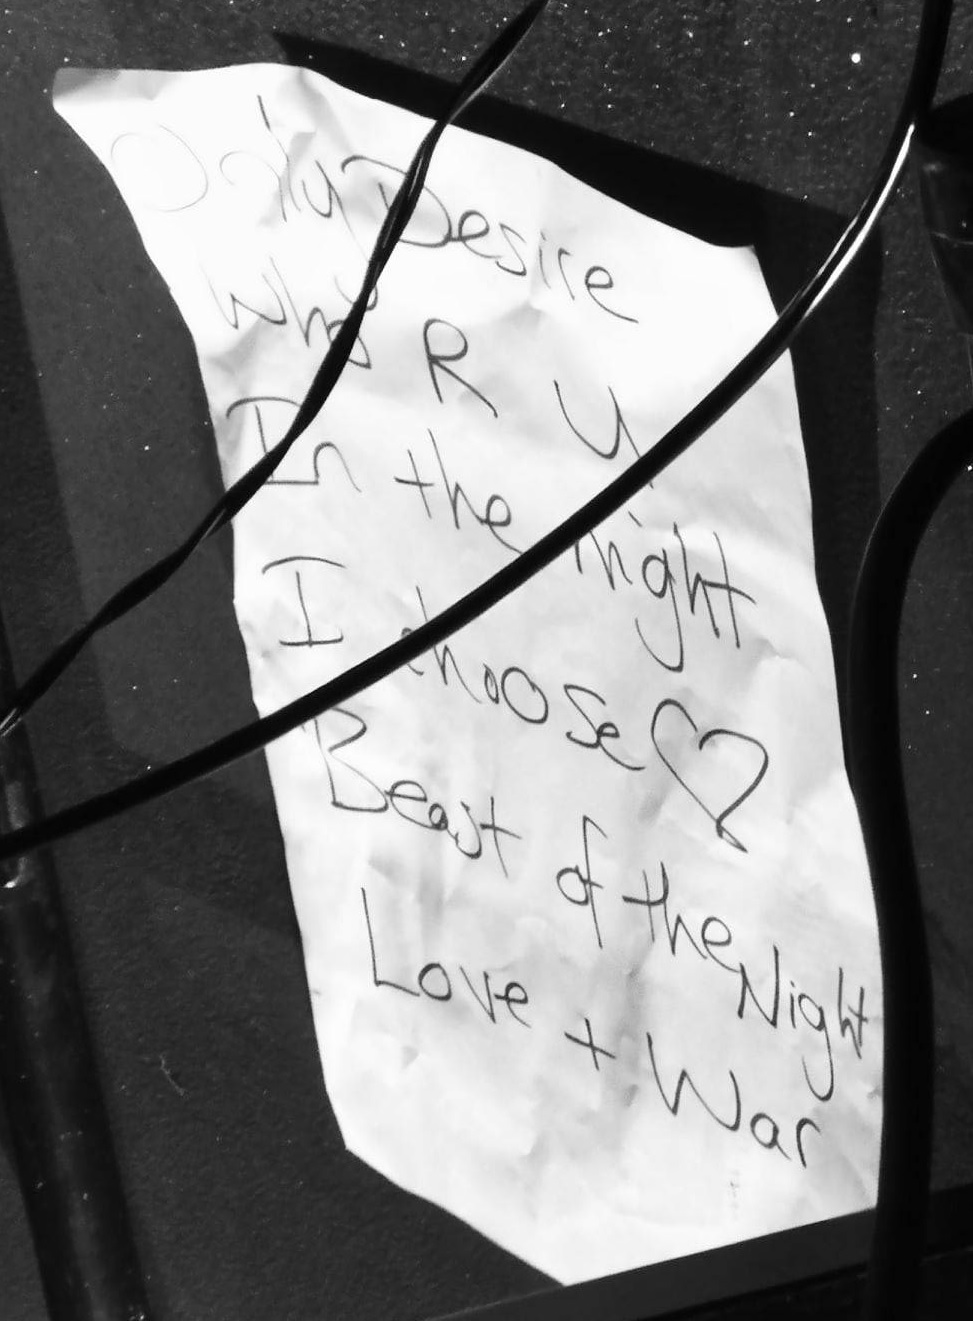 Only Desire
Who R U
In the night
I choose ♡
Beast of the Night
Love + War